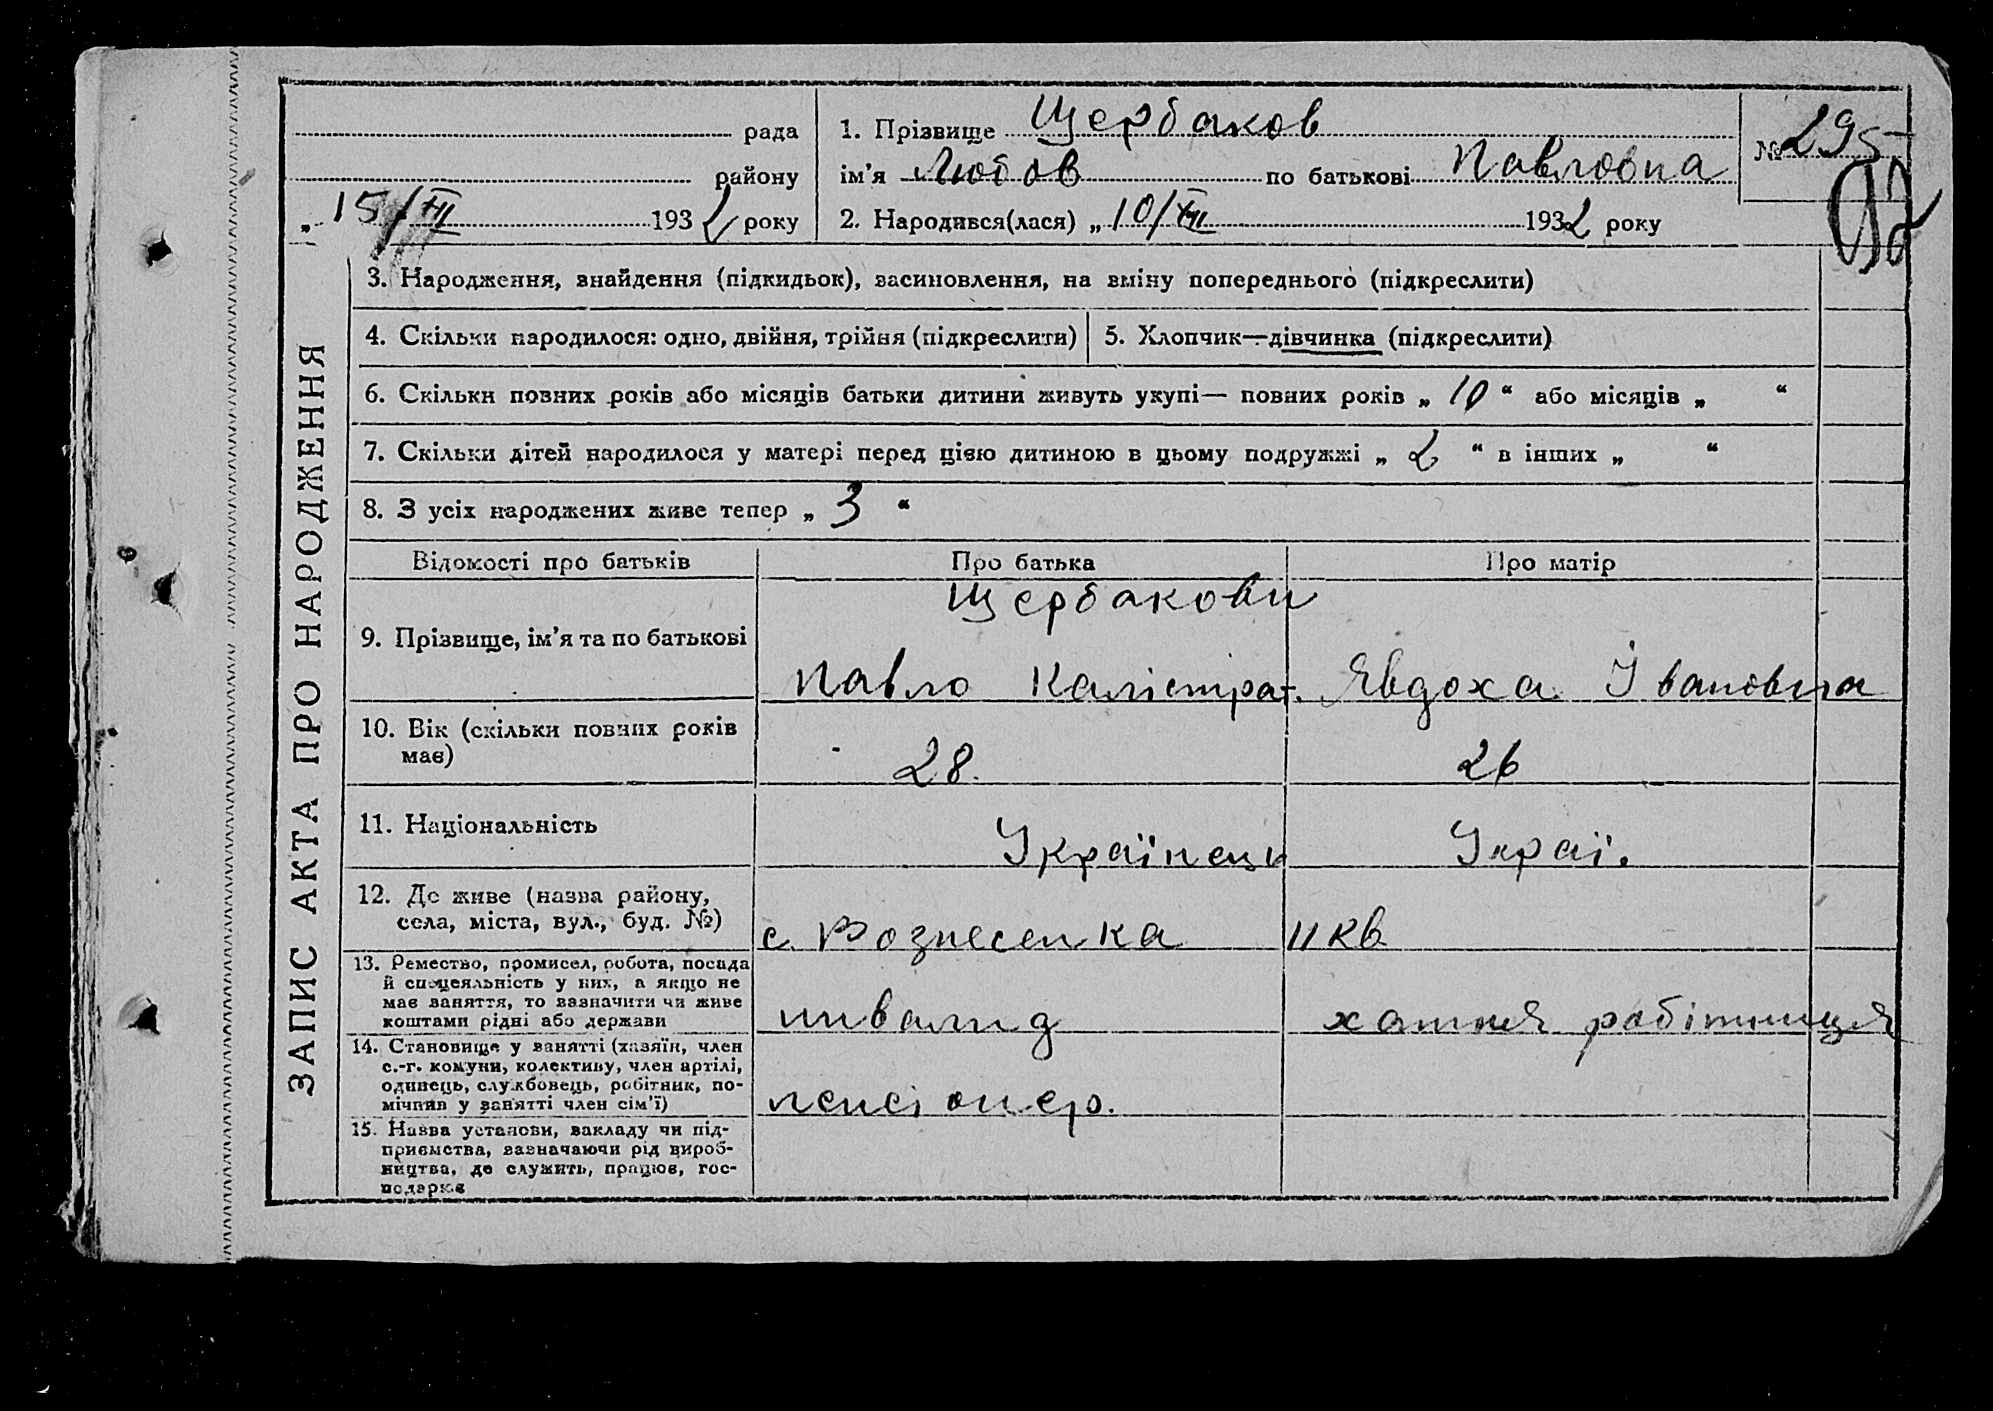 рада
району
„ 15/XII 1932 року
1. Прізвище Щербаков
ім'я Любов по батькові Павловна
2. Народився(лася) „ 10/XII 1932 року
№ 295
92
ЗАПИС АКТА ПРО НАРОДЖЕННЯ
3. Народження, знайдення (підкидьок), засиновлення, на зміну попереднього (підкреслити)
4. Скільки народилося: одно, двійня, трійня (підкреслити)
5. Хлопчик—дівчинка (підкреслити)
6. Скільки повних років або місяців батьки дитини живуть укупі— повних років „ 10 “ або місяців „ “
7. Скільки дітей народилося у матері перед цією дитиною в цьому подружжі „ 2 “ в інших „ “
8. З усіх народжених живе тепер „ 3 “
Відомості про батьків
Про батька
Про матір
9. Прізвище, ім'я та по батькові
Щербакови
Павло Калістрат.
Явдоха Івановна
10. Вік (скільки повних років
має)
28.
26
11. Національність
Українци
Украї.
12. Де живе (назва району,
села, міста, вул., буд. №)
с. Вознесенка
11 кв
13. Ремество, промисел, робота, посада
й спеціяльність у них, а якщо не
має заняття, то зазначити чи живе
коштами рідні або держави
инвалид
хатня робітниця
14. Становище у занятті (хазяїн, член
с.-г. комуни, колективу, член артілі,
одинець, службовець, робітник, по-
мічний у занятті член сім'ї)
пенсіонер.
15. Назва установи, закладу чи під-
приємства, зазначаючи рід вироб-
ництва, де служить, працює, гос-
подарює